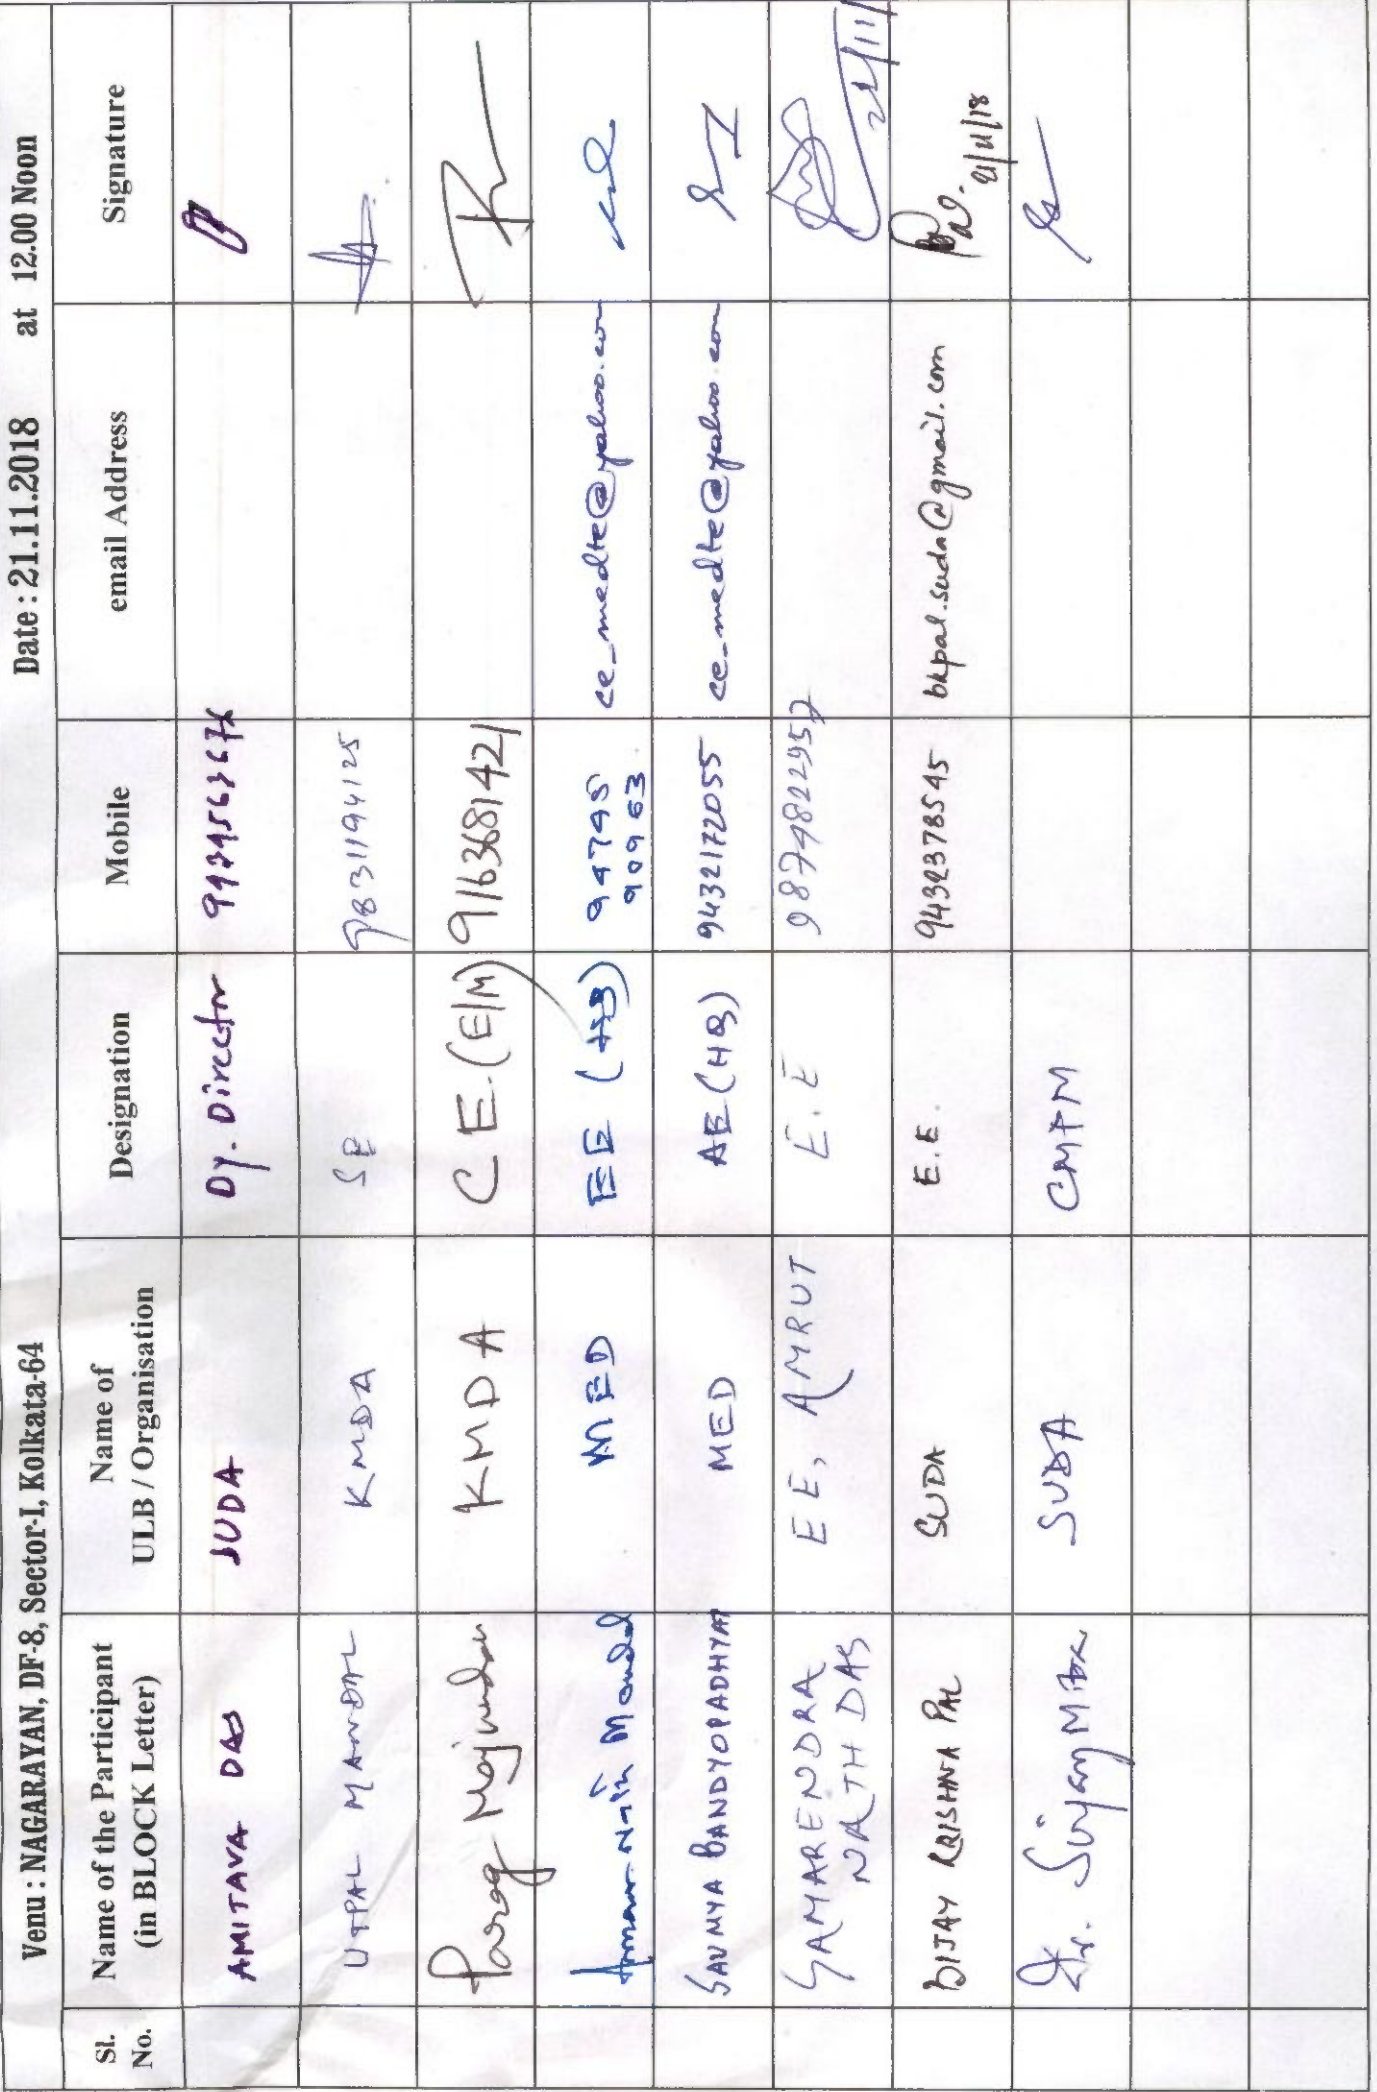 Venu : NAGARAYAN, DF-8, Sector-I, Kolkata-64 Date : 21.11.2018 at 12.00 Noon
Sl. No. Name of the Participant (in BLOCK Letter) Name of ULB / Organisation Designation Mobile email Address Signature
AMITAVA DAS SUDA Dy. Director
UTPAL MANDAL KMDA SE 9831194125
Parag Majumdar KMDA C E.(E/M) 9163681421
Amar Nath Mondal MED EE (HQ) 94745 90963 ce_medte@yahoo.com
SAUMYA BANDYOPADHYAY MED AE (HQ) 9432172055 ce_medte@yahoo.com
SAMARENDRA NATH DAS EE, AMRUT E.E 9874822957
BIJAY KRISHNA PAL SUDA E.E. 9432378545 bkpal.suda@gmail.com 21/11/18
Dr. SUDA